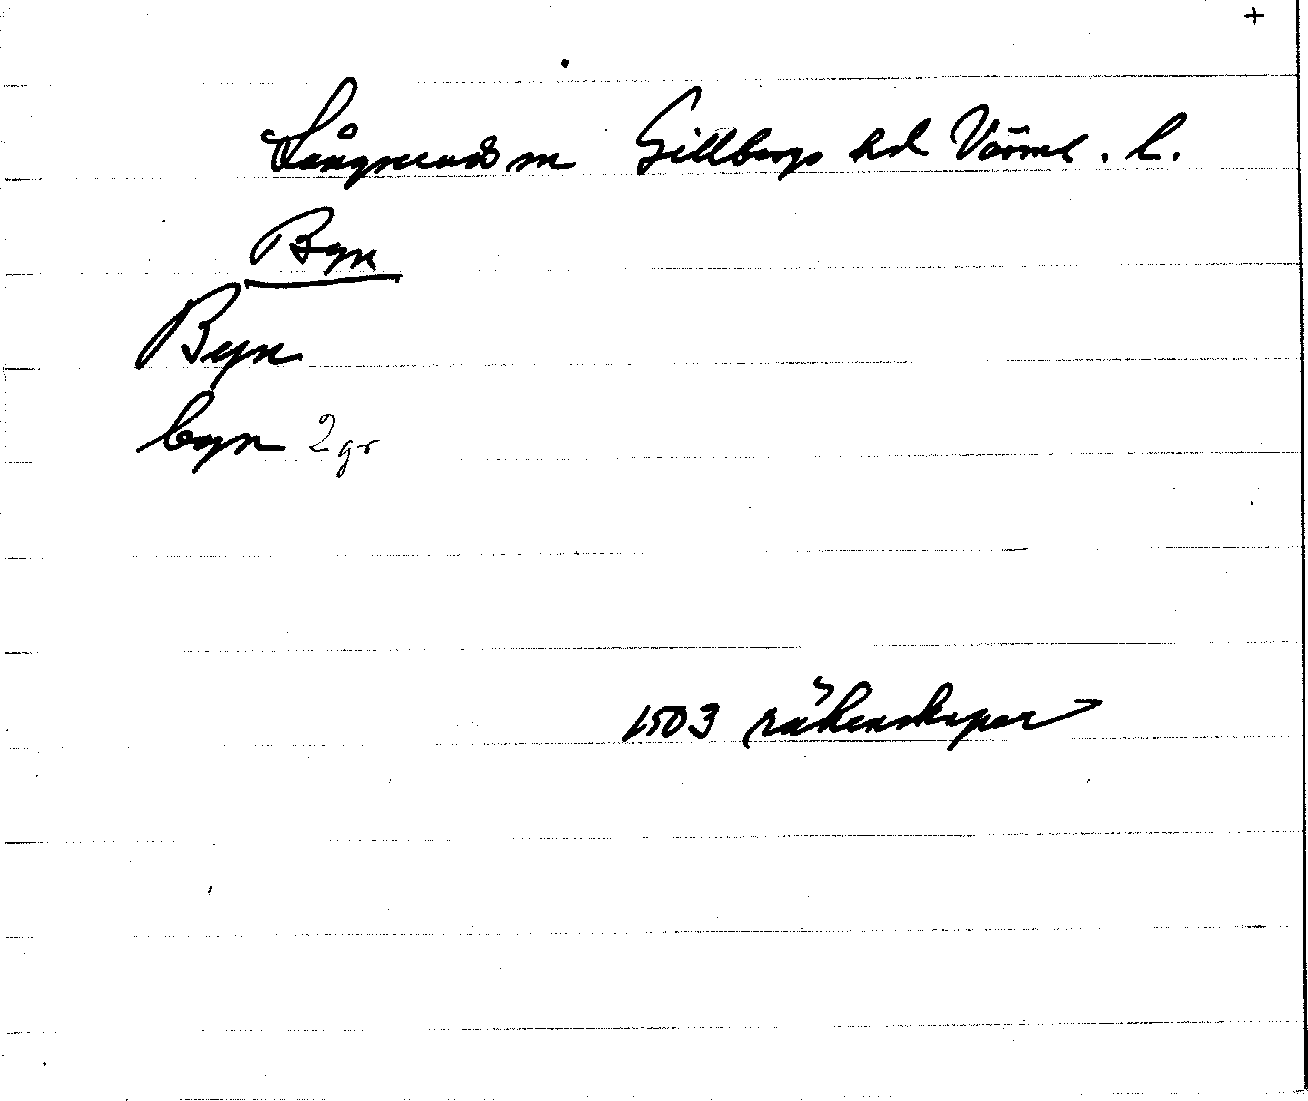 +
Långseruds sn Gillbergs hd Värml. l.
Byn
Byn
byn 2 gr
1503 räkenskaper